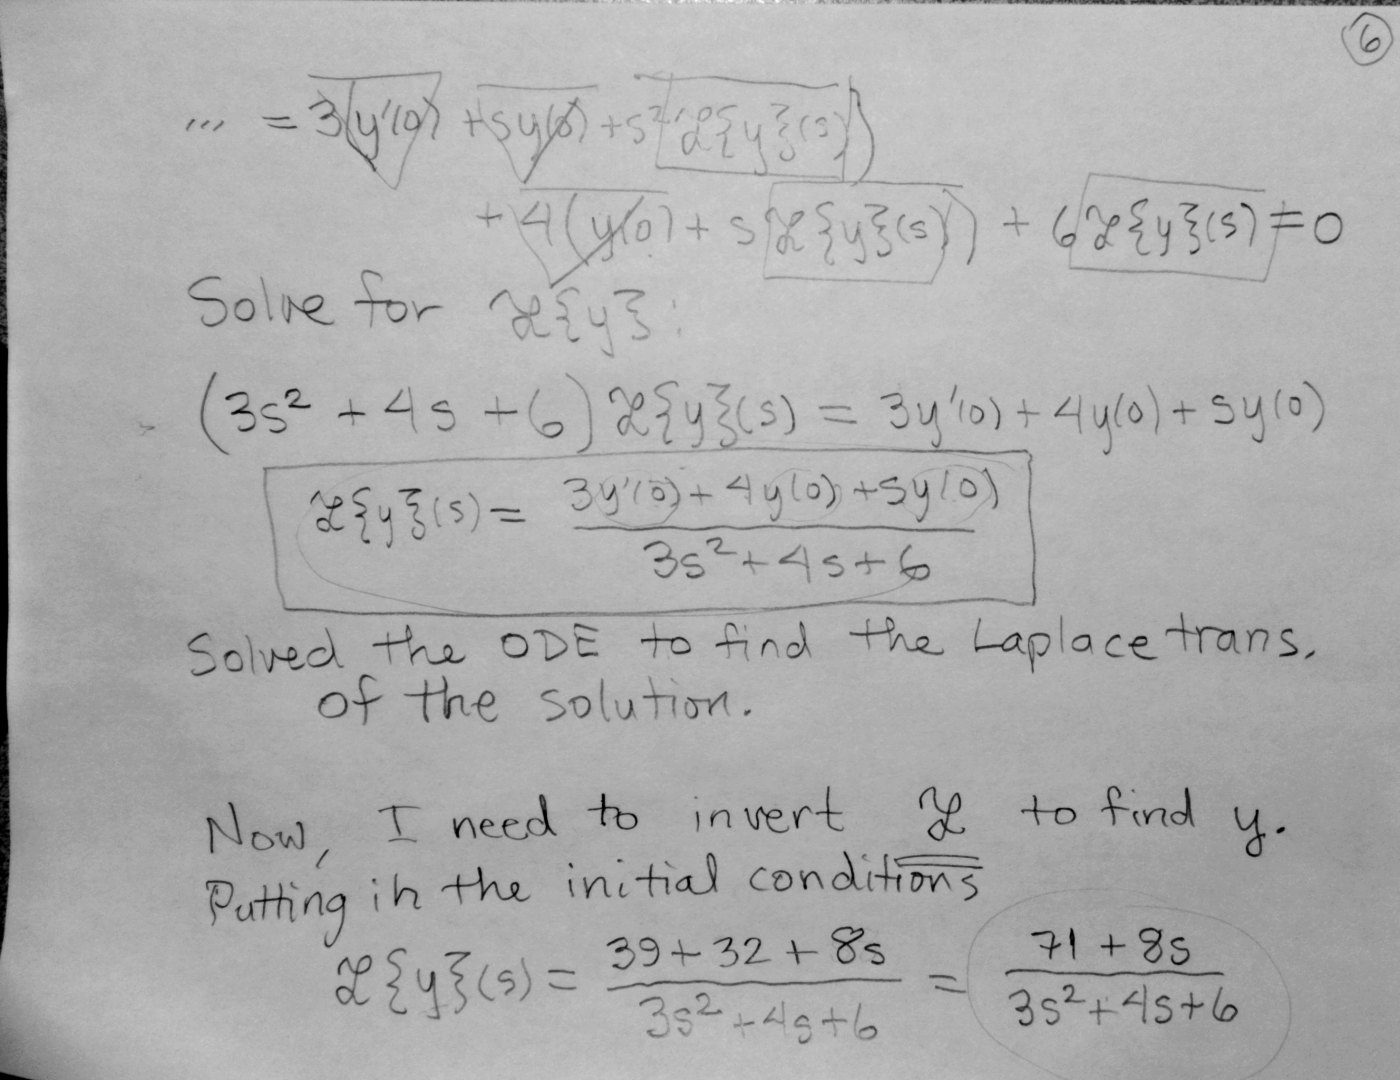 6
... = 3(y'(0) + sy(0) + s²ℒ{y}(s))
+ 4(y(0) + sℒ{y}(s)) + 6ℒ{y}(s) = 0
Solve for ℒ{y}:
(3s² + 4s + 6)ℒ{y}(s) = 3y'(0) + 4y(0) + sy(0)
ℒ{y}(s) = 3y'(0) + 4y(0) + sy(0)
3s² + 4s + 6
Solved the ODE to find the Laplace trans.
of the solution.
Now, I need to invert ℒ to find y.
Putting in the initial conditions
ℒ{y}(s) = 39 + 32 + 8s = 71 + 8s
3s² + 4s + 6 3s² + 4s + 6